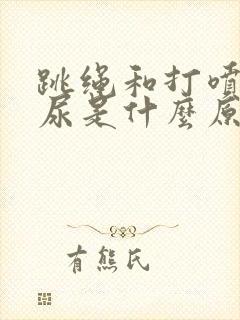 跳绳和打喷
尿是什麼原
有熊氏